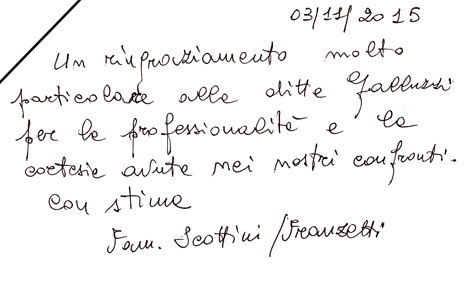 03/11/2015
Un ringraziamento molto
particolare alla ditta Galluzzi
per la professionalità e la
cortesia avuta nei nostri confronti.
Con stima
Fam. Scottini / Franzetti